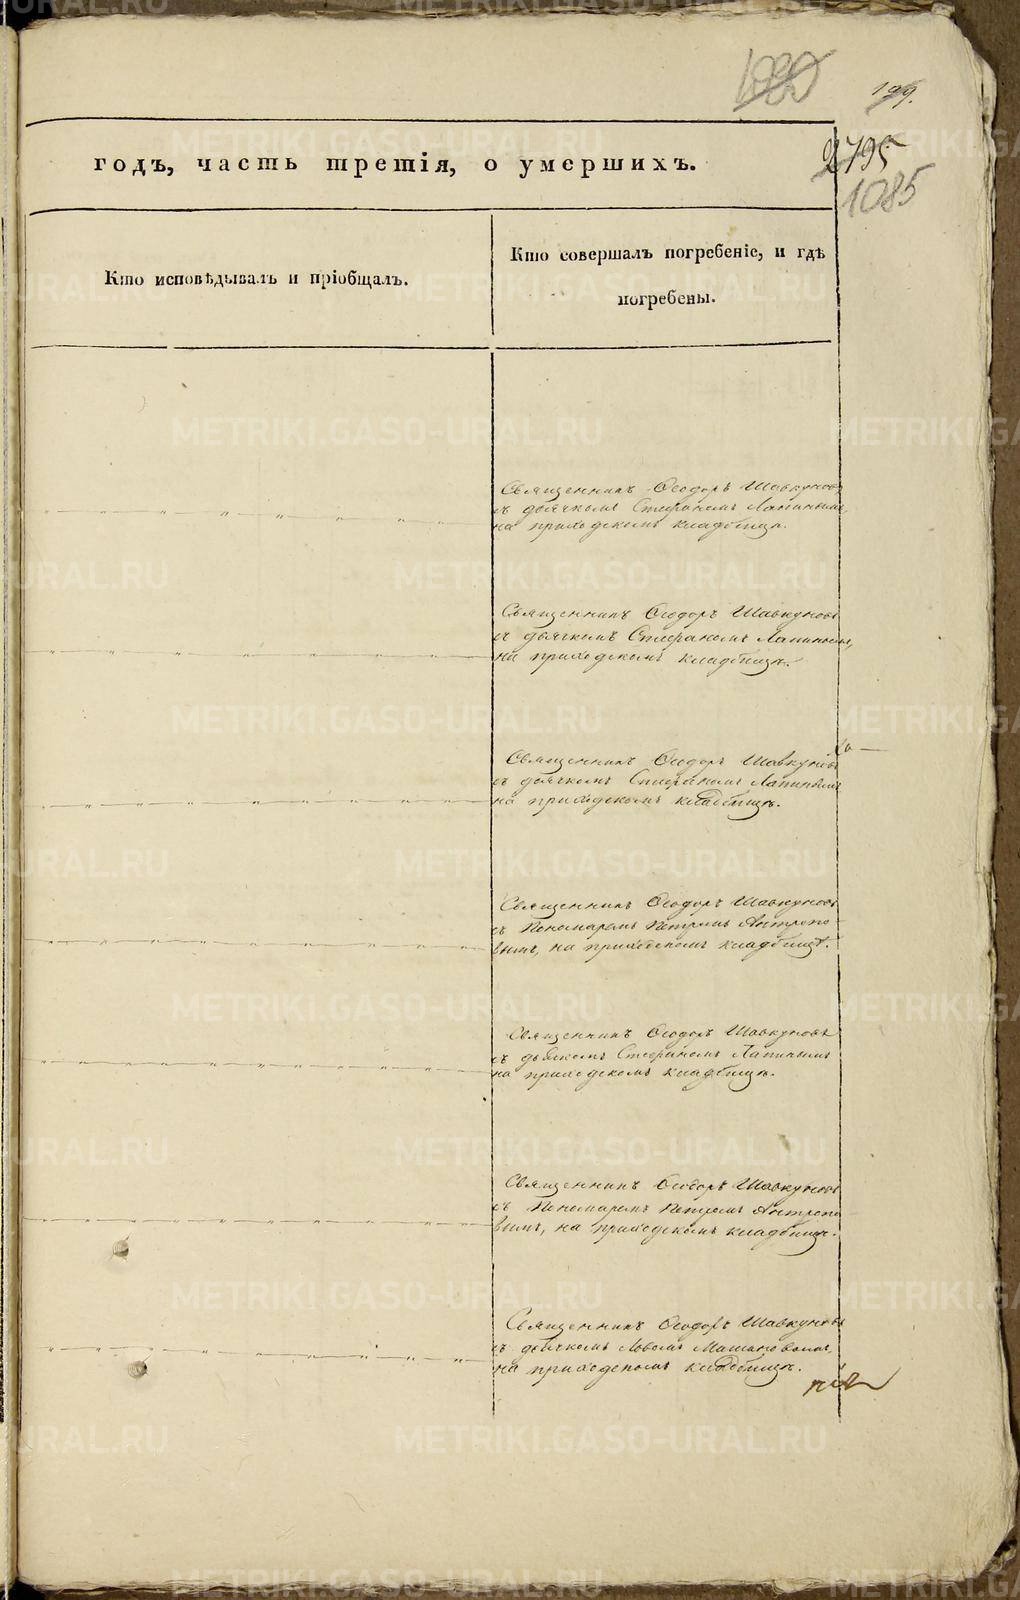 1080
199.
2795
1085
годъ, часть третія, о умершихъ.
Кто исповѣдывалъ и пріобщалъ.
Кто совершалъ погребеніе, и гдѣ
погребены.
Священникъ Ѳеодоръ Шавкуновъ
съ дьячкомъ Стефаномъ Лапинымъ
на приходскомъ кладбищѣ.
Священникъ Ѳеодоръ Шавкуновъ
съ дьячкомъ Стефаномъ Лапинымъ,
на приходскомъ кладбищѣ.
Священникъ Ѳеодоръ Шавкуновъ
съ дьячкомъ Стефаномъ Лапинымъ
на приходскомъ кладбищѣ.
Священникъ Ѳеодоръ Шавкуновъ
съ Пономаремъ Петромъ Антропо-
вымъ, на приходскомъ кладбищѣ.
Священникъ Ѳеодоръ Шавкуновъ
съ дьячкомъ Стефаномъ Лапинымъ
на приходскомъ кладбищѣ.
Священникъ Ѳеодоръ Шавкуновъ
съ Пономаремъ Петромъ Антропо
вымъ, на приходскомъ кладбищѣ.
Священникъ Ѳеодоръ Шавкуновъ
съ дьячкомъ
на приходскомъ кладбищѣ.
METRIKI.GASO-URAL.RU